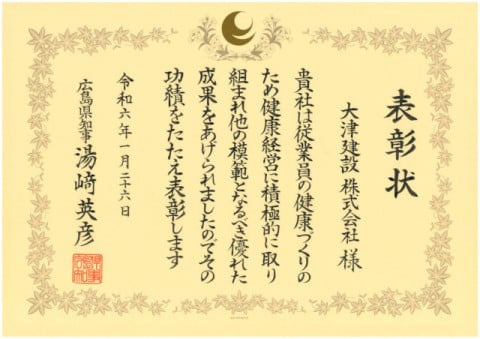 表彰状
大津建設 株式会社 様
貴社は従業員の健康づくりの
ため健康経営に積極的に取り
組まれ他の模範となるべき優れた
成果をあげられましたのでその
功績をたたえ表彰します
令和六年一月二十六日
広島県知事 湯﨑英彦